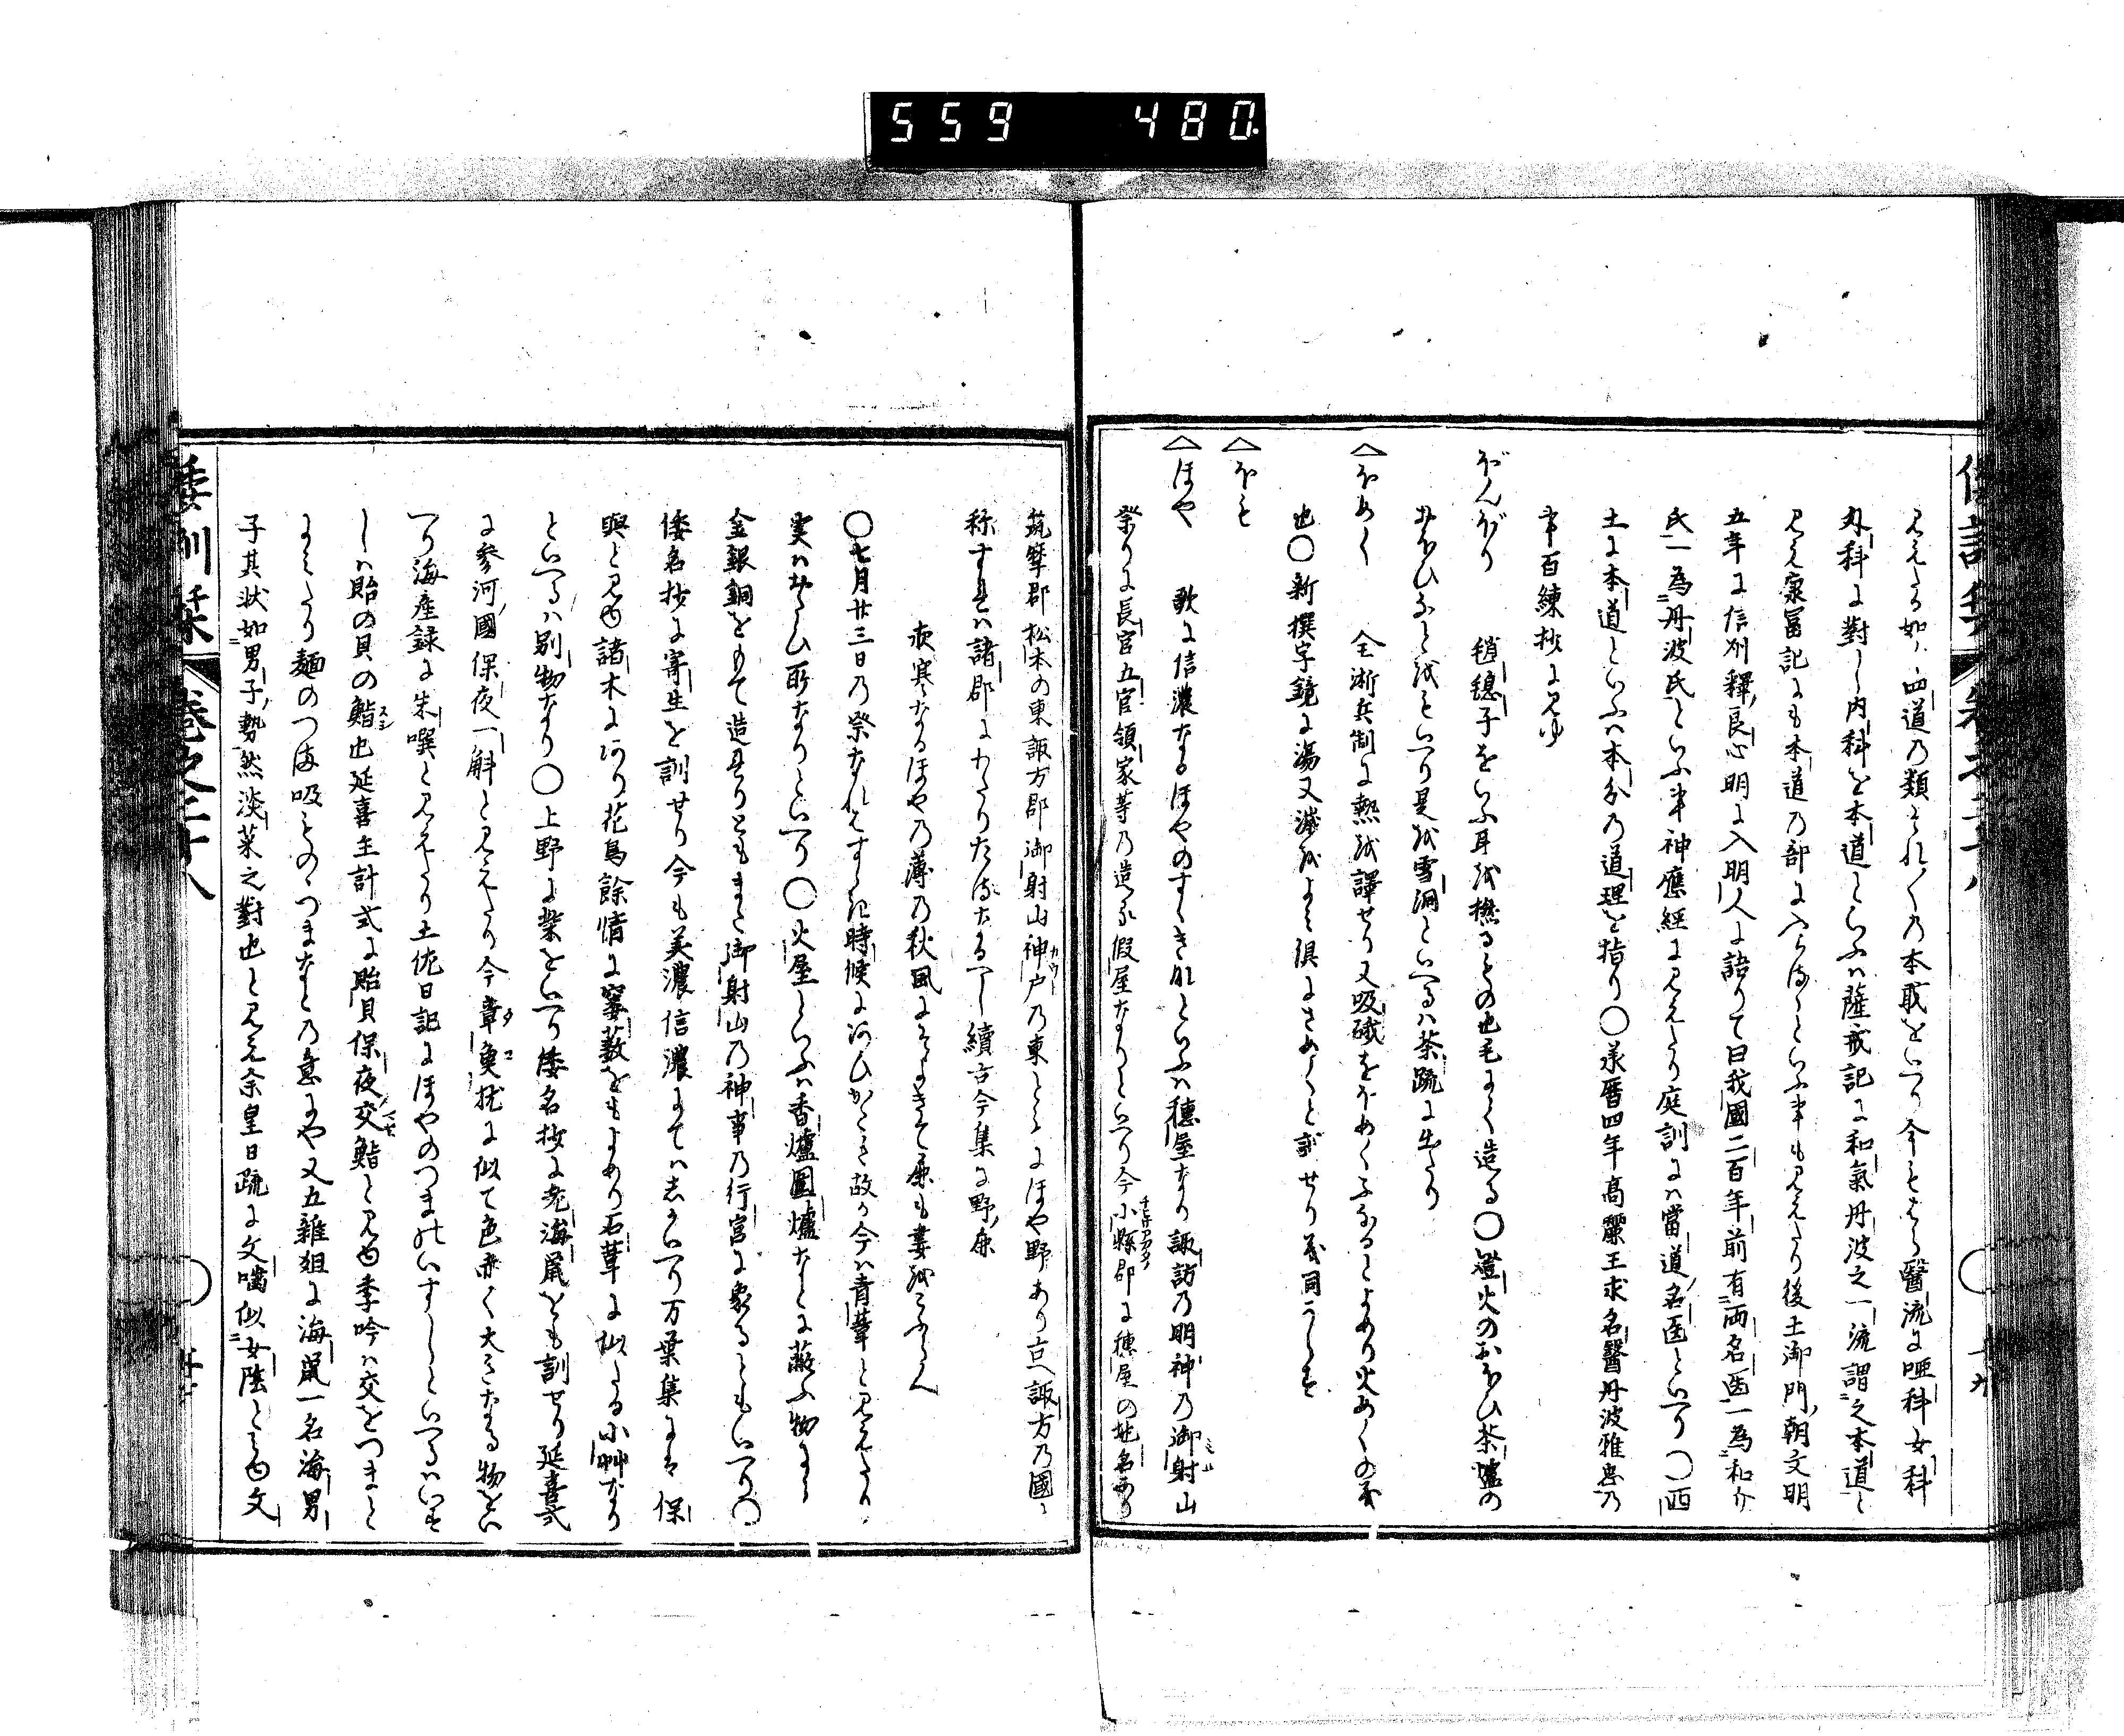 559 480
見えたる如し四道乃類それ〳〵の本取をいへり今もはら醫流に唖科女科
外科に對し内科を本道といふハ蔭戒記に和氣丹波之一流謂之本道と
見え康冨記にも本道乃部に入らぬといふ事も見えたり後土御門朝文明
五年に信州釋良心明に入明人に語りて曰我國二百年前有両名医一為和介
氏一為丹波氏といふ事神應經に見えたり庭訓にハ當道名医といへり〇西
土に本道といふハ本分乃道理を指り〇承暦四年高麗王求名醫丹波雅忠乃
事百練抄に見ゆ
ぼんぼり 稍穏子をいふ耳を撚るもの也毛にて造る〇燈火のおほひ茶爐の
おほひなとをもいへり是を雪洞といへるハ茶疏に出たり
△ほめく 全淅兵制に熱を譯せり又吸礟をほめくふなるとよめり火めくの義
也〇新撰字鏡に湯又をよみ倶にさめくと訓せり義同うらす
△ほも
△ほや 歌に信濃なるほやのすゝきなといふハ穂屋なり諏訪乃明神乃御射山
祭りに長官五官領家等乃造る假屋なりといへり今小縣郡に穂屋の地名あり
筑摩郡松本の東諏方郡御射山神戸乃東とゝにほや野あり古へ諏方乃國ミ
称すれハ諸郡にわたりたるなるへし續古今集に野鹿
夜寒なるほや乃薄乃秋風にそよきて鹿も妻をこふらん
〇七月廿三日乃祭なれはすゝきに時候にあひかたき故か今ハ青葦と見えたり
実ハおほひ所なりといへり〇火屋といふハ香爐圓爐なとに蔽ふ物にし
金銀銅をもて造れりともまた御射山乃神事乃行宮に象るともいへり〇
倭名抄に寄生を訓せり今も美濃信濃にてハしかいへり万葉集にハ保
與と見ゆ諸木にあり花鳥餘情に寠藪をもよめり石葦に似たる小艸なり
といへるハ別物なり〇上野に柴をいへり倭名抄に老海鼠をも訓せり延喜式
に参河國保夜一斛と見えたり今章魚枕に似て色赤く大きなる物をい
へり海産録に朱噀と見えたり土佐日記にほやのつまのいすしといへるハいす
しハ貽の貝の鮨也延喜主計式に貽貝保夜交鮨と見ゆ季吟ハ交をつまと
よみたり麺のつま吸ものゝつまなと乃意にや又五雜俎に海鼠一名海男
子其状如男子勢然淡菜之對也と見え余皇日疏に文嚙似女陰とみゆ文
倭訓栞 巻之二十八